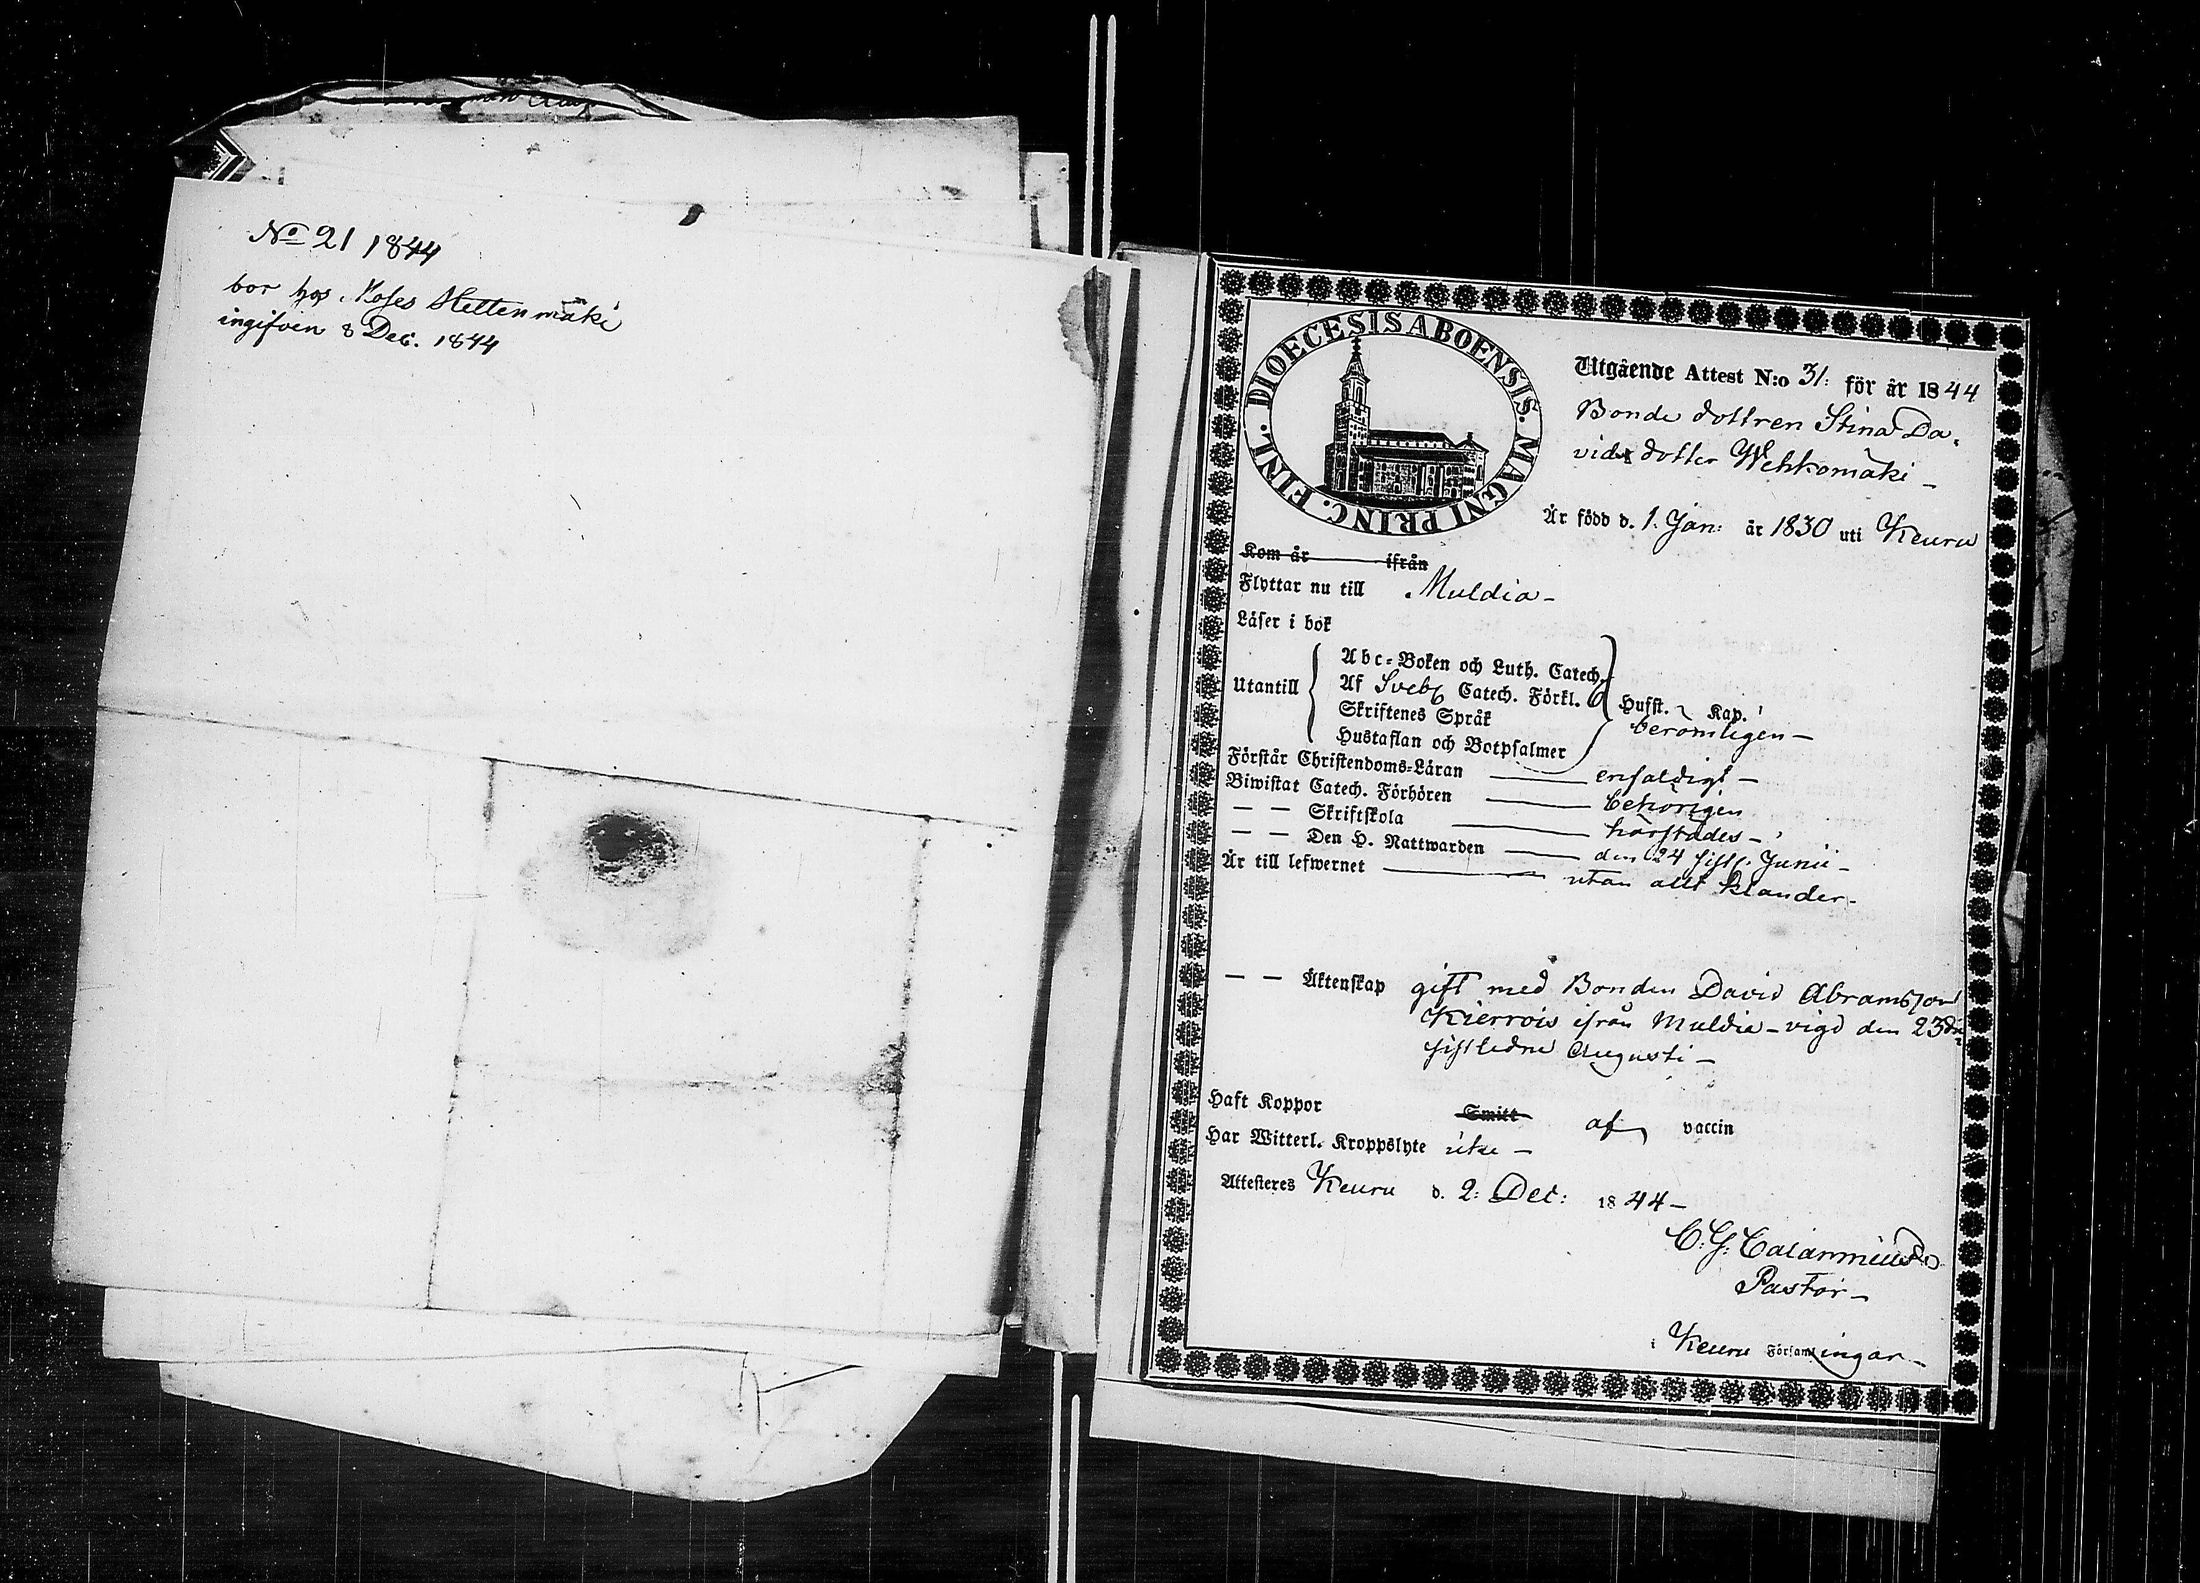 No 21 1844
bor hos Moses Hettenmäki
ingifven 8 Dec. 1844
DIOECESIS ABOENSIS. MAGNI PRINC. FINL.
Utgående Attest N:o 31: för år 1844
Bonde dottren Stina Da-
vids dotter Wehkomäki -
Är född d. 1. Jan: år 1830 uti Keuru
Kom år ifrån
Flyttar nu till Muldia -
Läser i bok
Utantill
Abc-Boken och Luth. Catech.
Af Sveb Catech. Förkl.
Skriftenes Språk
Hustaflan och Botpsalmer
Husst. Kap.
berömligen -
Förstår Christendoms-Läran enfaldigt -
Biwistat Catech. Förhören behörigen
— — Skriftskola härstädes -
— — Den H. Nattwarden den 24 sistl. Junii -
Är till lefwernet utan allt klander -
— — Äktenskap gift med Bonden David Abramsson
Kierrois ifrån Muldia - vigd den 23dje
sistledne Augusti -
Haft Koppor Smitt af vaccin
Har Witterl. Kroppslyte icke -
Attesteres Keuru d. 2: Dec: 1844 -
C. G. Calamnius
Pastor -
i Keuru Församlingar -